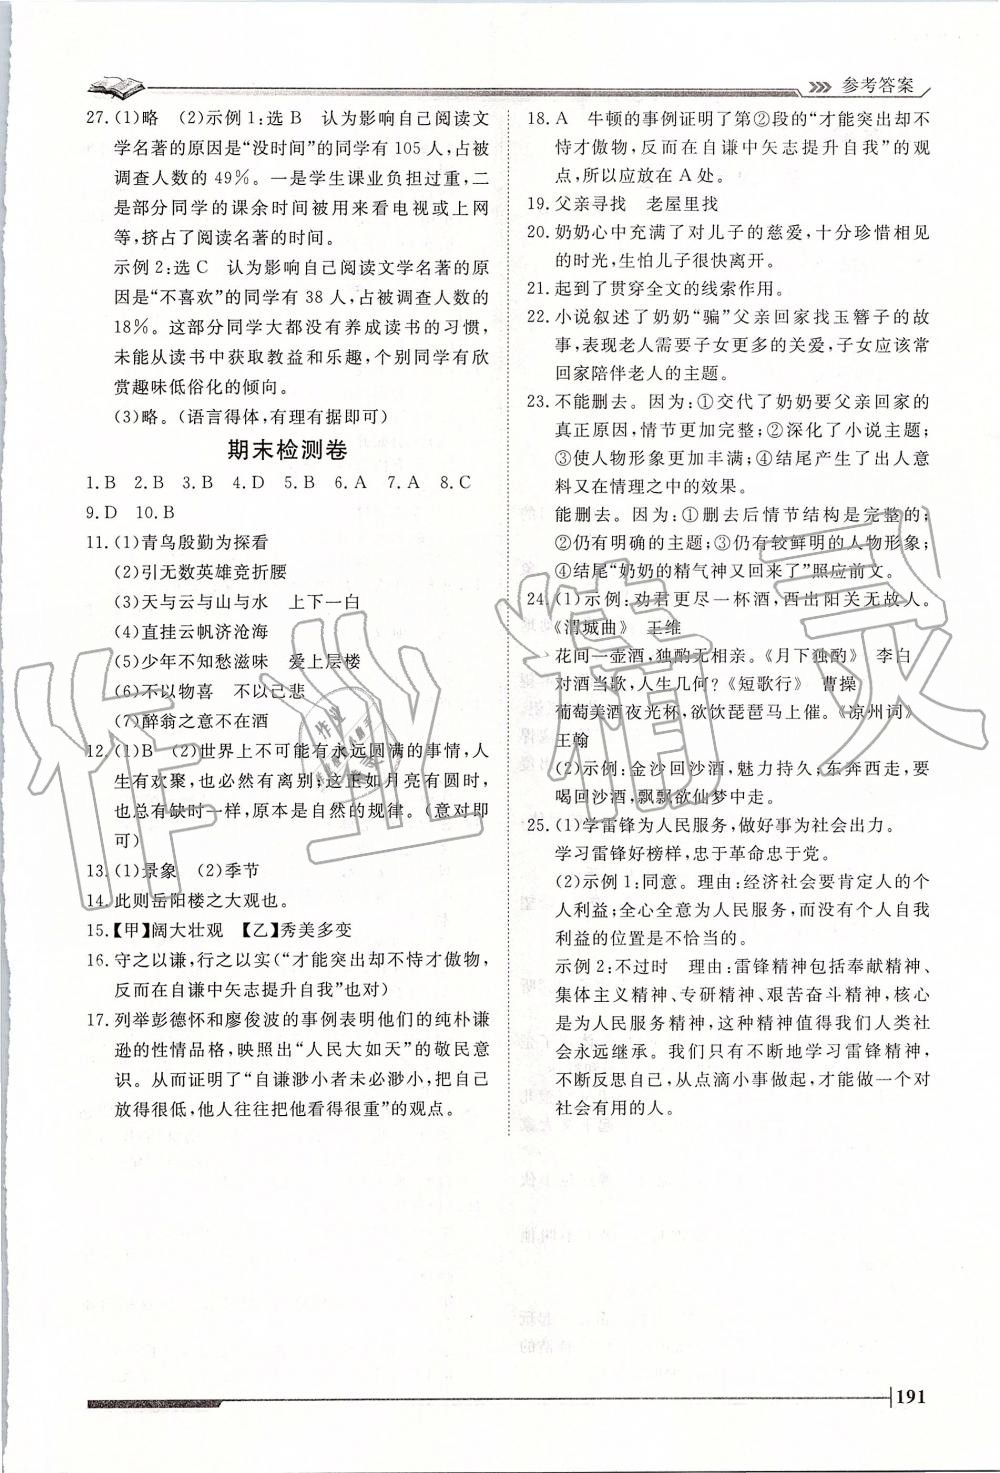 参考答案
27. (1)略　(2)示例1:选B　认为影响自己阅读文
学名著的原因是“没时间”的同学有105人,占被
调查人数的49%。一是学生课业负担过重,二
是部分同学的课余时间被用来看电视或上网
等,挤占了阅读名著的时间。
示例2:选C　认为影响自己阅读文学名著的原
因是“不喜欢”的同学有38人,占被调查人数的
18%。这部分同学大都没有养成读书的习惯,
未能从读书中获取教益和乐趣,个别同学有欣
赏趣味低俗化的倾向。
(3)略。(语言得体,有理有据即可)
期末检测卷
1. B　2. B　3. B　4. D　5. B　6. A　7. A　8. C
9. D　10. B
11. (1)青鸟殷勤为探看
(2)引无数英雄竞折腰
(3)天与云与山与水　上下一白
(4)直挂云帆济沧海
(5)少年不知愁滋味　爱上层楼
(6)不以物喜　不以己悲
(7)醉翁之意不在酒
12. (1)B　(2)世界上不可能有永远圆满的事情,人
生有欢聚,也必然有离别;这正如月亮有圆时,
也总有缺时一样,原本是自然的规律。(意对即
可)
13. (1)景象　(2)季节
14. 此则岳阳楼之大观也。
15.【甲】阔大壮观　【乙】秀美多变
16. 守之以谦,行之以实(“才能突出却不恃才傲物,
反而在自谦中矢志提升自我”也对)
17. 列举彭德怀和廖俊波的事例表明他们的纯朴谦
逊的性情品格,映照出“人民大如天”的敬民意
识。从而证明了“自谦渺小者未必渺小,把自己
放得很低,他人往往把他看得很重”的观点。
18. A　牛顿的事例证明了第②段的“才能突出却不
恃才傲物,反而在自谦中矢志提升自我”的观
点,所以应放在A处。
19. 父亲寻找　老屋里找
20. 奶奶心中充满了对儿子的慈爱,十分珍惜相见
的时光,生怕儿子很快离开。
21. 起到了贯穿全文的线索作用。
22. 小说叙述了奶奶“骗”父亲回家找玉簪子的故
事,表现老人需要子女更多的关爱,子女应该常
回家陪伴老人的主题。
23. 不能删去。因为:①交代了奶奶要父亲回家的
真正原因,情节更加曲折;②深化了小说主题;
③使人物形象更加丰满;④结尾产生了出人意
料又在情理之中的效果。
能删去。因为:①删去后情节结构是完整的;
②仍有明确的主题;③仍有较鲜明的人物形象;
④结尾“奶奶的精气神又回来了”照应前文。
24. (1)示例:劝君更尽一杯酒,西出阳关无故人。
《渭城曲》　王维
花间一壶酒,独酌无相亲。《月下独酌》　李白
对酒当歌,人生几何?《短歌行》　曹操
葡萄美酒夜光杯,欲饮琵琶马上催。《凉州词》
王翰
(2)示例:金沙回沙酒,魅力持久;东奔西走,要
喝回沙酒,飘飘欲仙梦中走。
25. (1)学雷锋为人民服务,做好事为社会出力。
学习雷锋好榜样,忠于革命忠于党。
(2)示例1:同意。理由:经济社会要肯定人的个
人利益;全心全意为人民服务,而没有个人自我
利益的位置是不恰当的。
示例2:不过时　理由:雷锋精神包括奉献精神、
集体主义精神、专研精神、艰苦奋斗精神,核心
是为人民服务精神,这种精神值得我们人类社
会永远继承。我们只有不断地学习雷锋精神,
不断反思自己,从点滴小事做起,才能做一个对
社会有用的人。
191
作业精灵